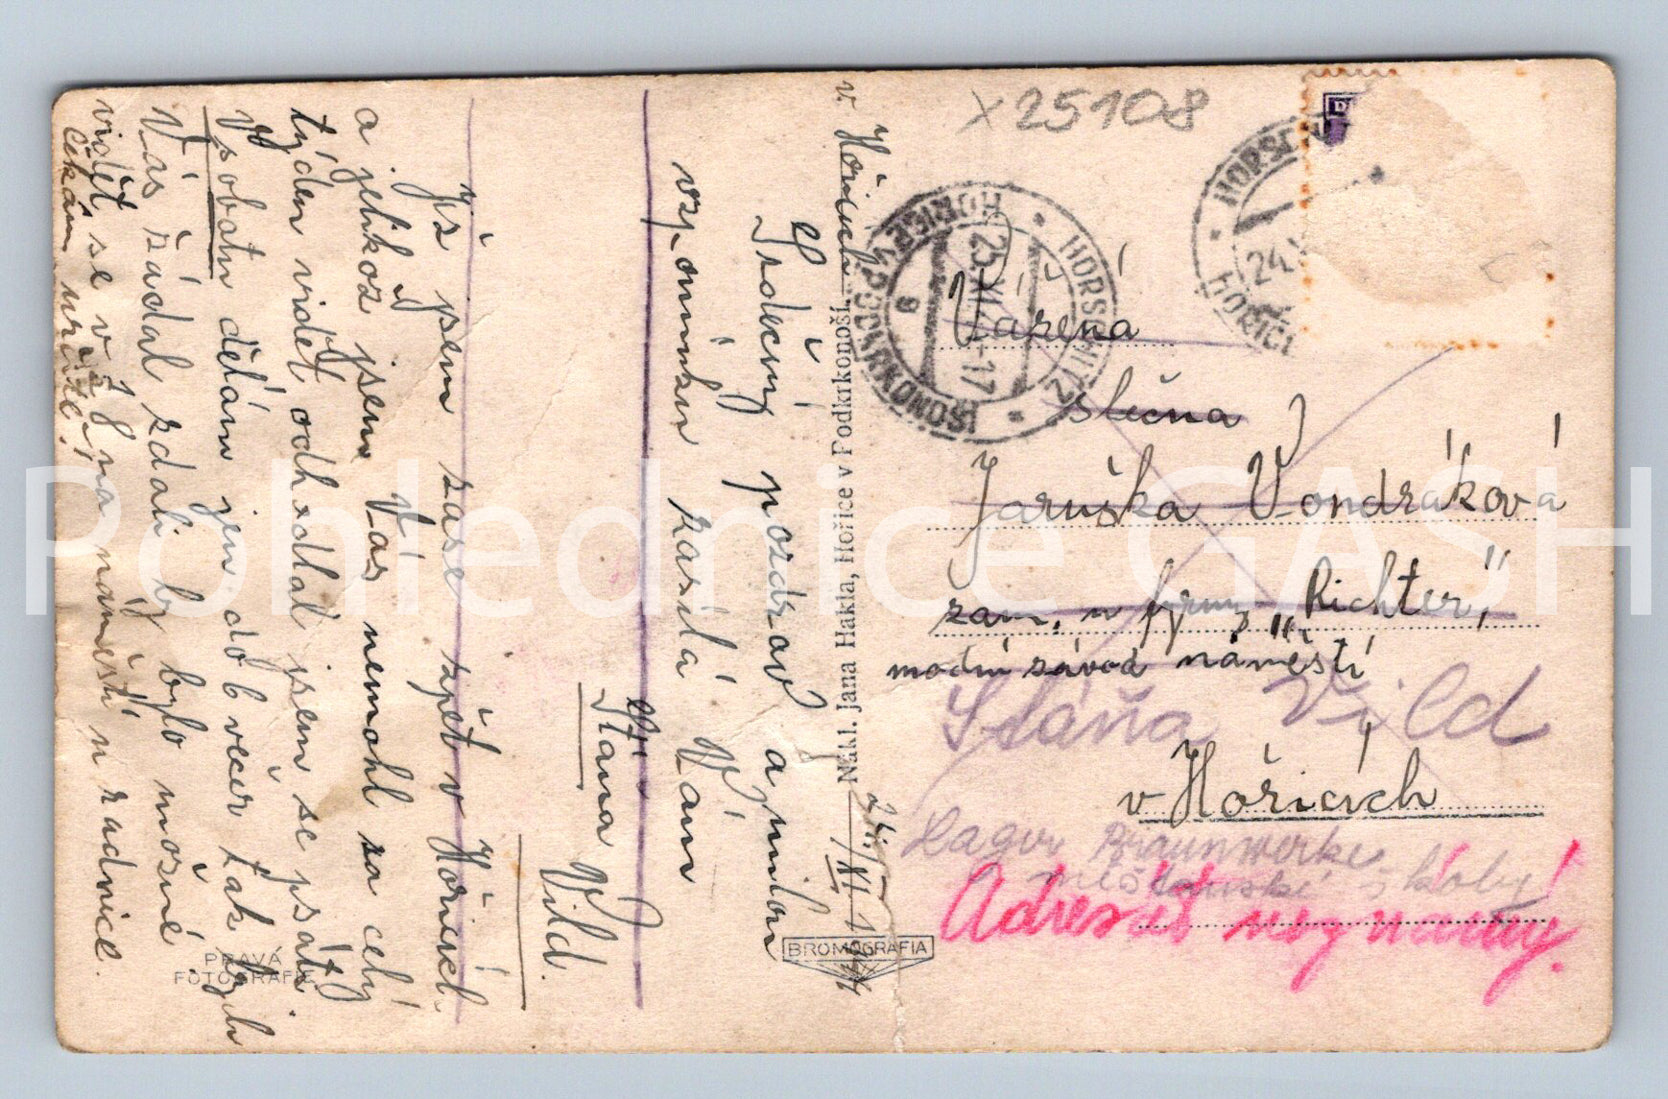 x 25108
v. Hořicích
24./XI. 19
Srdečný pozdrav a milou
vzpomínku zasílá Vám
Stáňa Vild.
Již jsem zase zpět v Hořicích
a jelikož jsem Vás nemohl za celý
týden vidět odhodlal jsem se psáti.
V sobotu dělám jen do 6 večer tak bych
Vás žádal zdali by bylo možné
vidět se v 18 na náměstí u radnice.
Čekám určitě!
PRAVÁ
FOTOGRAFIE
Nákl. Jana Hakla, Hořice v Podkrkonoší.
BROMOGRAFIA
HORSCHITZ
HOŘICE V PODKRKONOŠÍ
25.XI.
-17
8
HORSCH
24.
HOŘICE
Vážená
slečna
Jaruška Vondráková
zam. u firmy „Richter"
modní závod náměstí
Stáňa Vild
v Hořicích
Lager Braunwerke
měšťanské školy
Adresát neznámý.
Pohlednice GASH